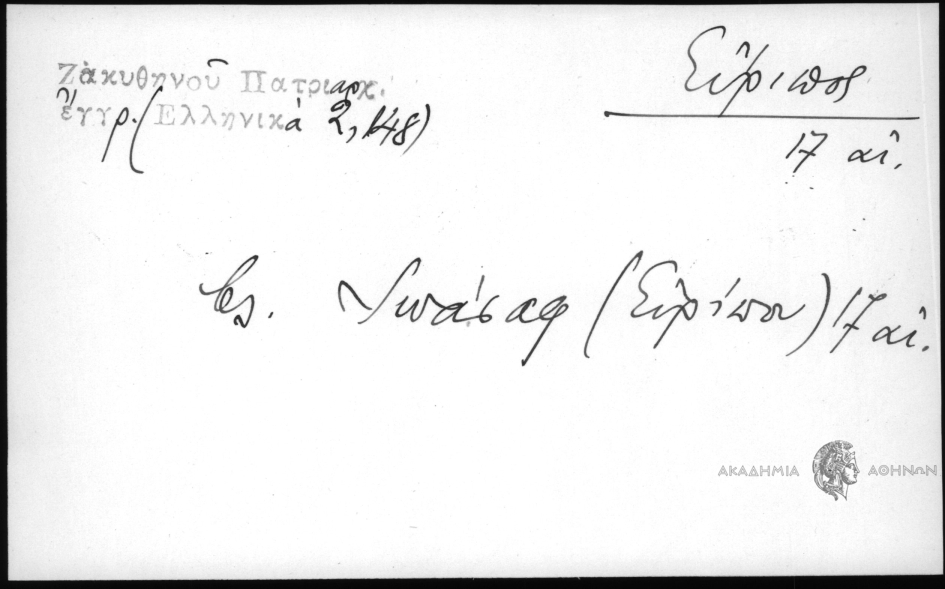 Ζακυθηνοῦ Πατριαρχ.
ἔγγρ. (Ἑλληνικά 2, 148)
Εὔριπος
17 αἰ.
βλ. Ἰωάσαφ (Εὐρίπου) 17 αἰ.
ΑΚΑΔΗΜΙΑ ΑΘΗΝΩΝ